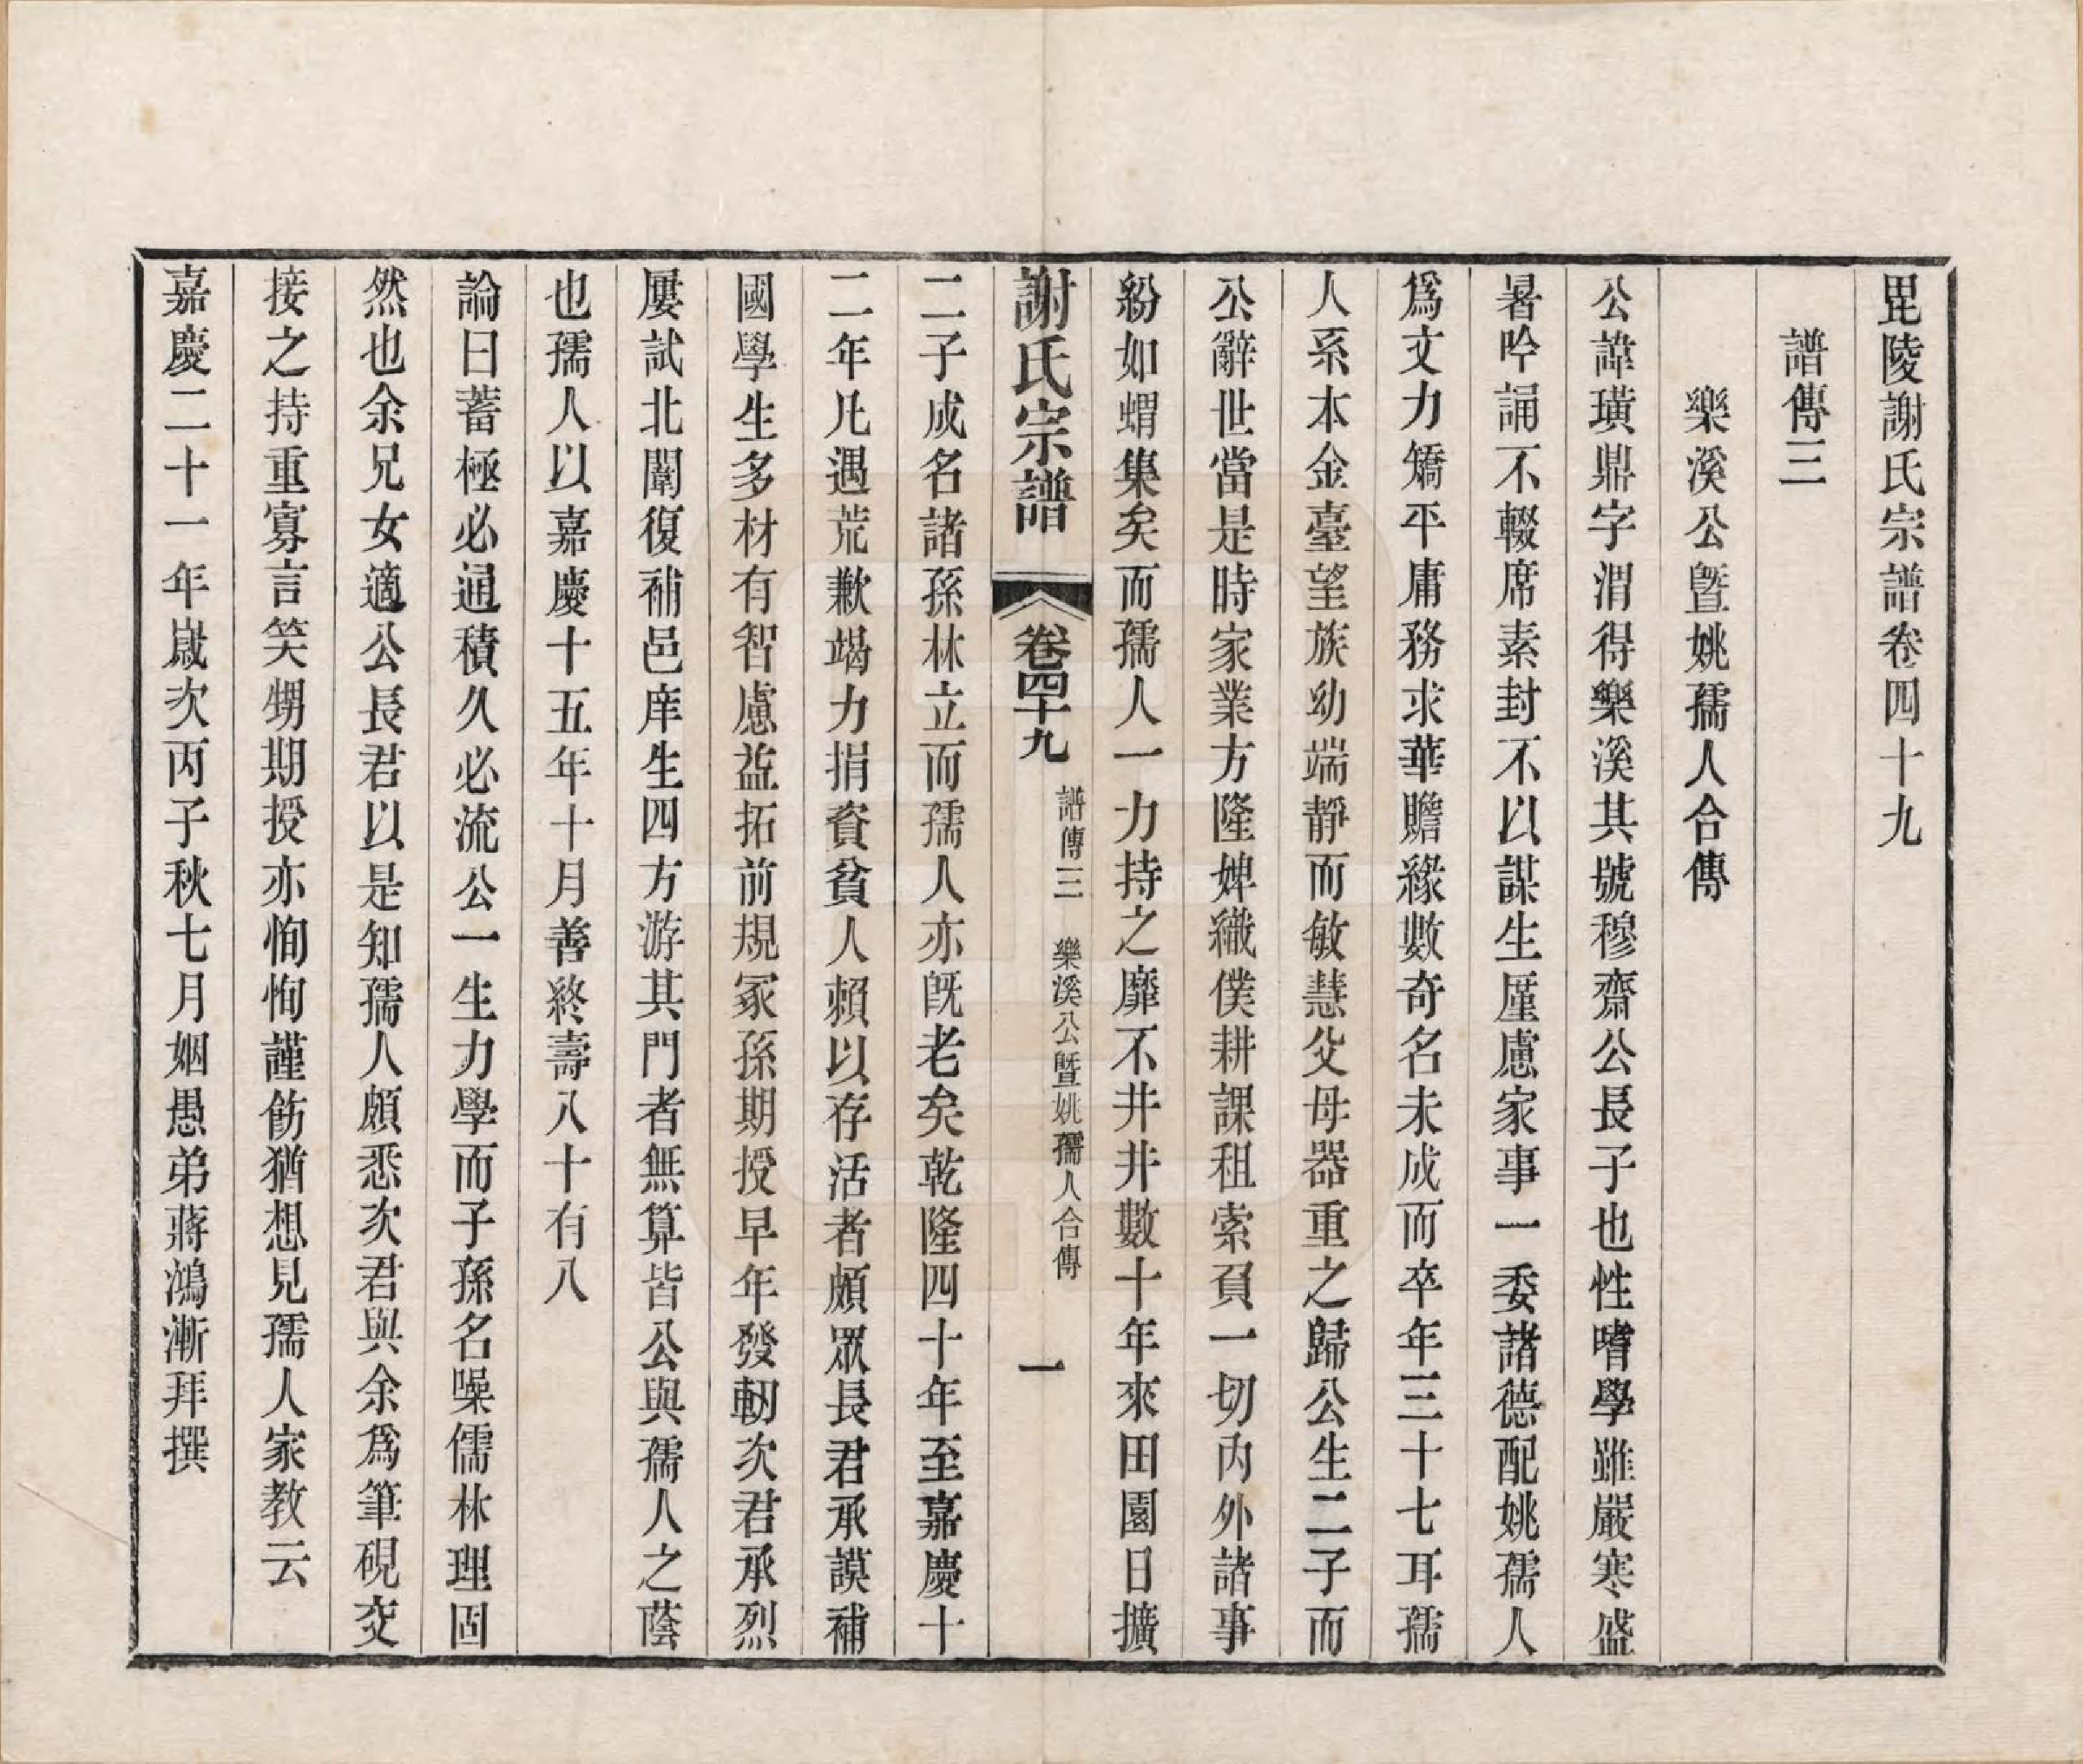 毘陵謝氏宗譜卷四十九
譜傳三
樂溪公曁姚孺人合傳
公諱璜鼎字渭得樂溪其號穆齋公長子也性嗜學雖嚴寒盛
暑吟誦不輟席素封不以謀生厪慮家事一委諸德配姚孺人
爲文力矯平庸務求華贍緣數奇名未成而卒年三十七耳孺
人系本金臺望族幼端靜而敏慧父母器重之歸公生二子而
公辭世當是時家業方隆婢織僕耕課租索負一切內外諸事
紛如蝟集矣而孺人一力持之靡不井井數十年來田園日擴
謝氏宗譜 卷四十九 譜傳三 樂溪公曁姚孺人合傳 一
二子成名諸孫林立而孺人亦旣老矣乾隆四十年至嘉慶十
二年凡遇荒歉竭力捐資貧人賴以存活者頗眾長君承謨補
國學生多材有智慮益拓前規冢孫期授早年發軔次君承烈
屢試北闈復補邑庠生四方游其門者無算皆公與孺人之蔭
也孺人以嘉慶十五年十月善終壽八十有八
論曰蓄極必通積久必流公一生力學而子孫名噪儒林理固
然也余兄女適公長君以是知孺人頗悉次君與余爲筆硯交
接之持重寡言笑甥期授亦恂恂謹飭猶想見孺人家教云
嘉慶二十一年歲次丙子秋七月姻愚弟蔣鴻漸拜撰